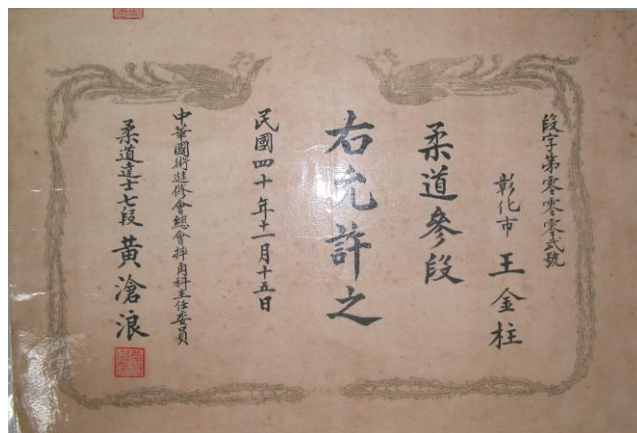 段字第零零零弍號
彰化市 王金柱
柔道參段
右允許之
民國四十年十一月十五日
中華國術進修會總會摔角科主任委員
柔道達士七段 黃滄浪